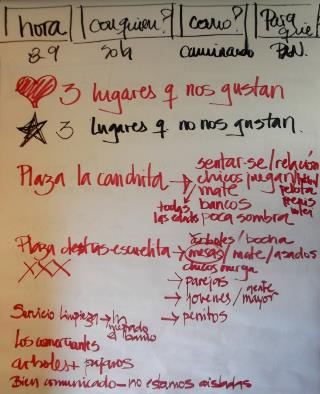 hora con quien? como? Para que
8-9 sola caminando
3 lugares q nos gustan
3 lugares q no nos gustan.
Plaza la canchita → sentar-se/relación
chicos juegan/
mate pelota
todas las edades bancos
poca sombra
Plaza detras escuelita → arboles/bocha
mesas/mate/asados
chicos murga
→ parejas
→ jovenes/gente mayor
→ perritos
Servicio limpieza → un
barrio
Los comerciantes
arboles + pajaros
Bien comunicado - no estamos aisladas